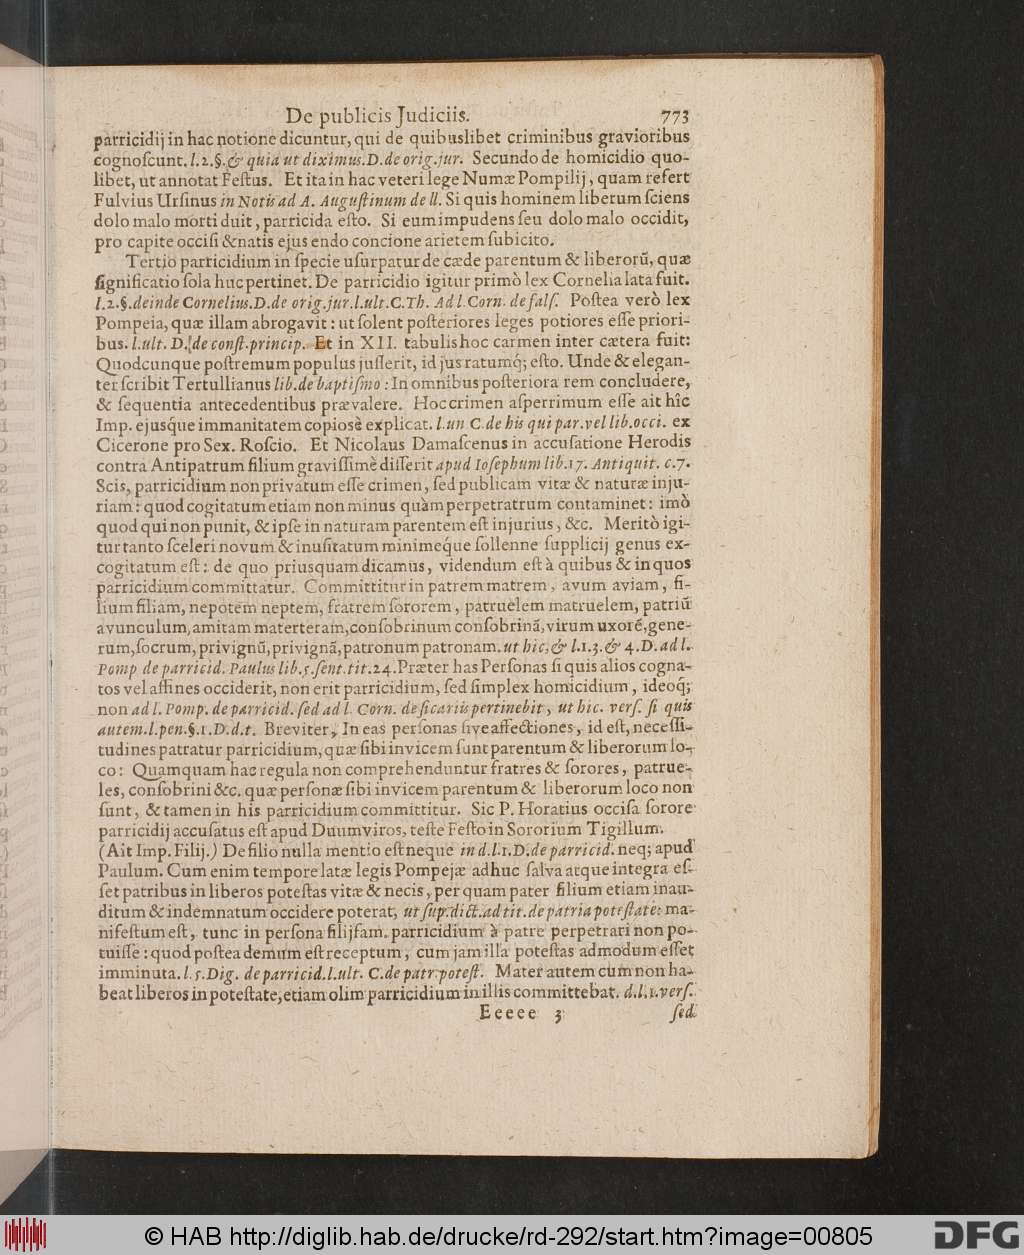 De publicis Judiciis. 773
parricidij in hac notione dicuntur, qui de quibuslibet criminibus gravioribus
cognoſcunt. l.2.§.& quia ut diximus.D.de orig.jur. Secundo de homicidio quo-
libet, ut annotat Feſtus. Et ita in hac veteri lege Numæ Pompilij, quam refert
Fulvius Urſinus in Notis ad A. Auguſtinum de ll. Si quis hominem liberum ſciens
dolo malo morti duit, parricida eſto. Si eum impudens ſeu dolo malo occidit,
pro capite occiſi & natis ejus endo concione arietem ſubicito.
Tertio parricidium in ſpecie uſurpatur de cæde parentum & liberorū, quæ
ſignificatio ſola huc pertinet. De parricidio igitur primò lex Cornelia lata fuit.
l.2.§.deinde Cornelius.D.de orig.jur.l.ult.C.Th. Ad l.Corn. de falſ. Poſtea verò lex
Pompeia, quæ illam abrogavit: ut ſolent poſteriores leges potiores eſſe priori-
bus. l.ult. D. de conſt.princip. Et in XII. tabulis hoc carmen inter cætera fuit:
Quodcunque poſtremum populus juſſerit, id jus ratumq́; eſto. Unde & elegan-
ter ſcribit Tertullianus lib.de baptiſmo: In omnibus poſteriora rem concludere,
& ſequentia antecedentibus prævalere. Hoc crimen aſperrimum eſſe ait hîc
Imp. ejusq́ue immanitatem copiosè explicat. l.un C.de his qui par.vel lib.occi. ex
Cicerone pro Sex. Roſcio. Et Nicolaus Damaſcenus in accuſatione Herodis
contra Antipatrum filium graviſſimè diſſerit apud Ioſephum lib.17. Antiquit. c.7.
Scis, parricidium non privatum eſſe crimen, ſed publicam vitæ & naturæ inju-
riam: quod cogitatum etiam non minus quàm perpetratrum contaminet: imò
quod qui non punit, & ipſe in naturam parentem eſt injurius, &c. Meritò igi-
tur tanto ſceleri novum & inuſitatum minimeq́ue ſollenne ſupplicij genus ex-
cogitatum eſt: de quo priusquam dicamus, videndum eſt à quibus & in quos
parricidium committatur. Committitur in patrem matrem, avum aviam, fi-
lium filiam, nepotem neptem, fratrem ſororem, patruelem matruelem, patriū
avunculum, amitam materteram, conſobrinum conſobrinā, virum uxorē, gene-
rum, ſocrum, privignū, privignā, patronum patronam. ut hic, & l.1.3. & 4.D.ad l.
Pomp de parricid. Paulus lib.5.ſent.tit.24. Præter has Perſonas ſi quis alios cogna-
tos vel affines occiderit, non erit parricidium, ſed ſimplex homicidium, ideoq́;
non ad l. Pomp. de parricid. ſed ad l. Corn. de ſicariis pertinebit, ut hic. verſ. ſi quis
autem.l.pen.§.1.D.d.t. Breviter, In eas perſonas ſive affectiones, id eſt, neceſſi-
tudines patratur parricidium, quæ ſibi invicem ſunt parentum & liberorum lo-
co: Quamquam hac regula non comprehenduntur fratres & ſorores, patrue-
les, conſobrini &c. quæ perſonæ ſibi invicem parentum & liberorum loco non
ſunt, & tamen in his parricidium committitur. Sic P. Horatius occiſa ſorore
parricidij accuſatus eſt apud Duumviros, teſte Feſto in Sororium Tigillum.
(Ait Imp. Filij.) De filio nulla mentio eſt neque in d.l.1.D.de parricid. neq; apud
Paulum. Cum enim tempore latæ legis Pompejæ adhuc ſalva atque integra eſ-
ſet patribus in liberos poteſtas vitæ & necis, per quam pater filium etiam inau-
ditum & indemnatum occidere poterat, ut ſup.dict.ad tit. de patria poteſtate: ma-
nifeſtum eſt, tunc in perſona filijfam. parricidium à patre perpetrari non po-
tuiſſe: quod poſtea demum eſt receptum, cum jam illa poteſtas admodum eſſet
imminuta. l.5.Dig. de parricid.l.ult. C.de patr.poteſt. Mater autem cum non ha-
beat liberos in poteſtate, etiam olim parricidium in illis committebat. d.l.1.verſ.
Eeeee 3 ſed
© HAB http://diglib.hab.de/drucke/rd-292/start.htm?image=00805 DFG